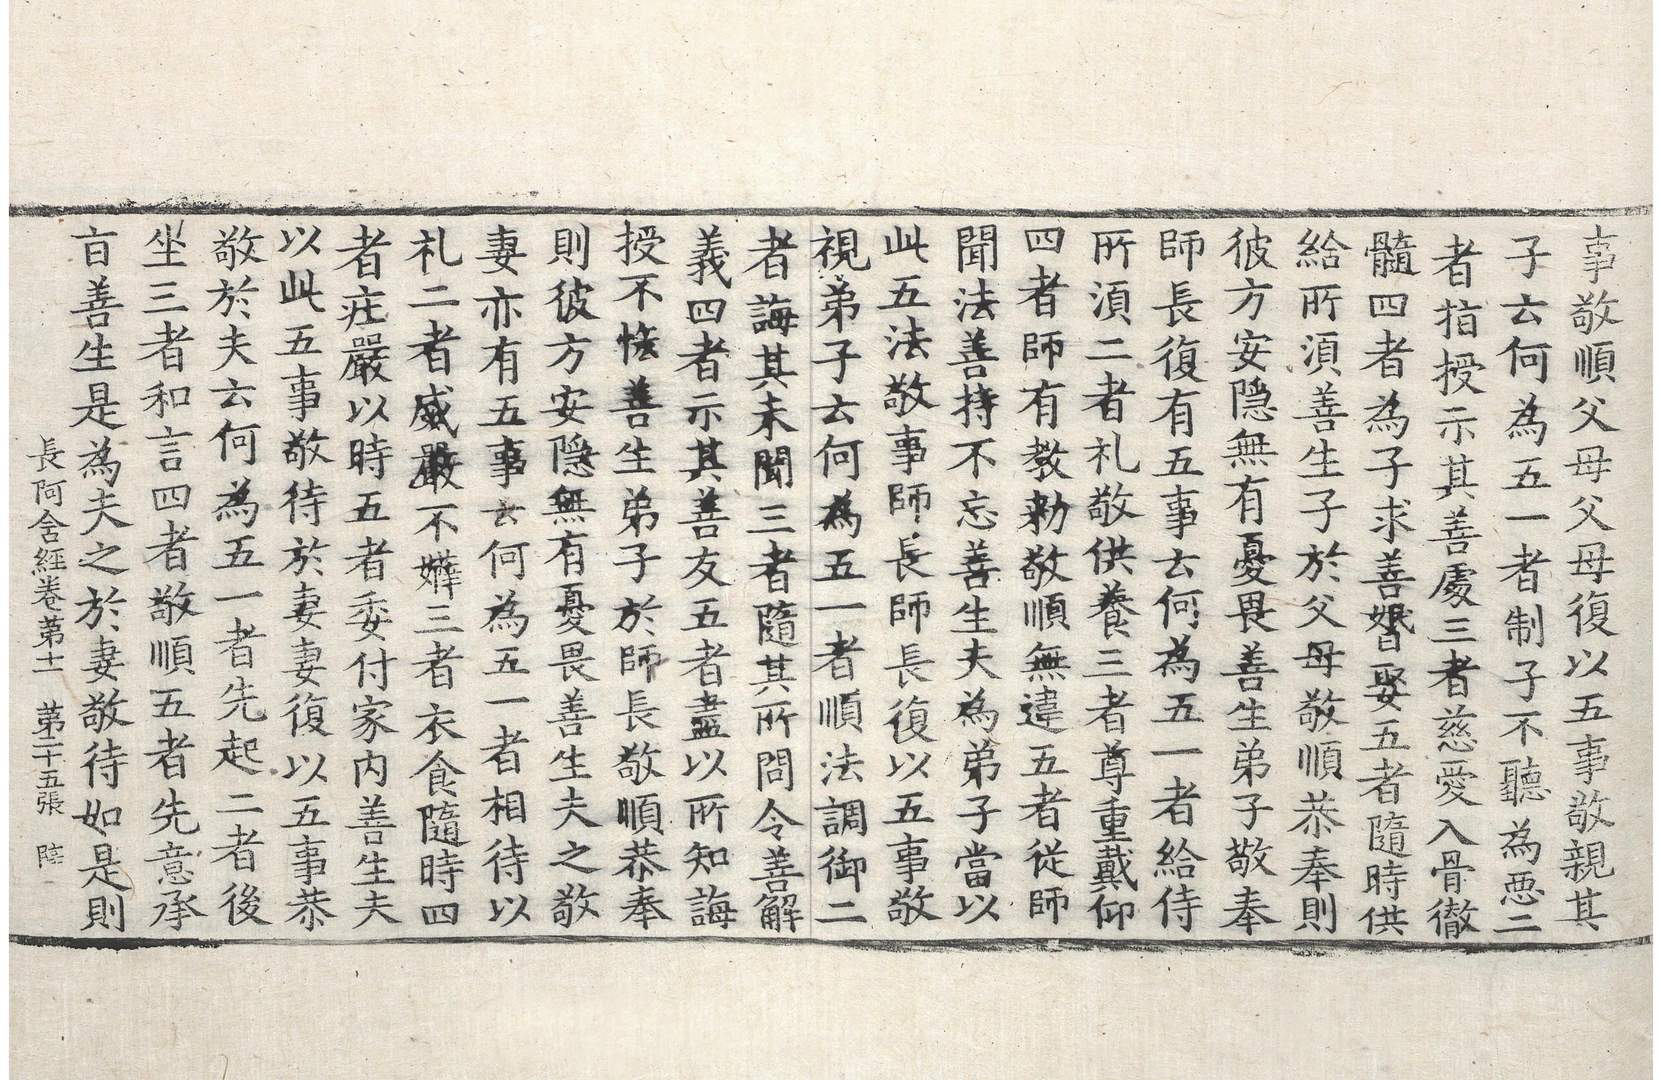 事敬順父母父母復以五事敬親其
子云何為五一者制子不聽為惡二
者指授示其善處三者慈愛入骨徹
髓四者為子求善婚娶五者隨時供
給所湏善生子於父母敬順恭奉則
彼方安隱無有憂畏善生弟子敬奉
師長復有五事云何為五一者給侍
所湏二者礼敬供養三者尊重戴仰
四者師有教勑敬順無違五者從師
聞法善持不忘善生夫為弟子當以
此五法敬事師長師長復以五事敬
視弟子云何為五一者順法調御二
者誨其未聞三者隨其所問令善解
義四者示其善友五者盡以所知誨
授不悋善生弟子於師長敬順恭奉
則彼方安隱無有憂畏善生夫之敬
妻亦有五事云何為五一者相待以
礼二者威嚴不媟三者衣食隨時四
者莊嚴以時五者委付家內善生夫
以此五事敬待於妻妻復以五事恭
敬於夫云何為五一者先起二者後
坐三者和言四者敬順五者先意承
㫖善生是為夫之於妻敬待如是則
長阿含經卷第十一 第二十五張